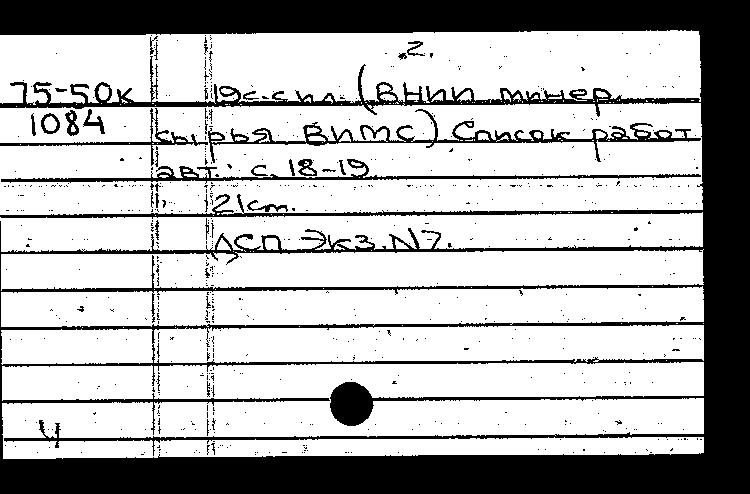 .2.
75-50к 19с. с ил. (ВНИИ минер.
1084 сырья ВИМС) Список работ
авт.: с. 18-19
21см.
ДСП Экз. N7.
Ч